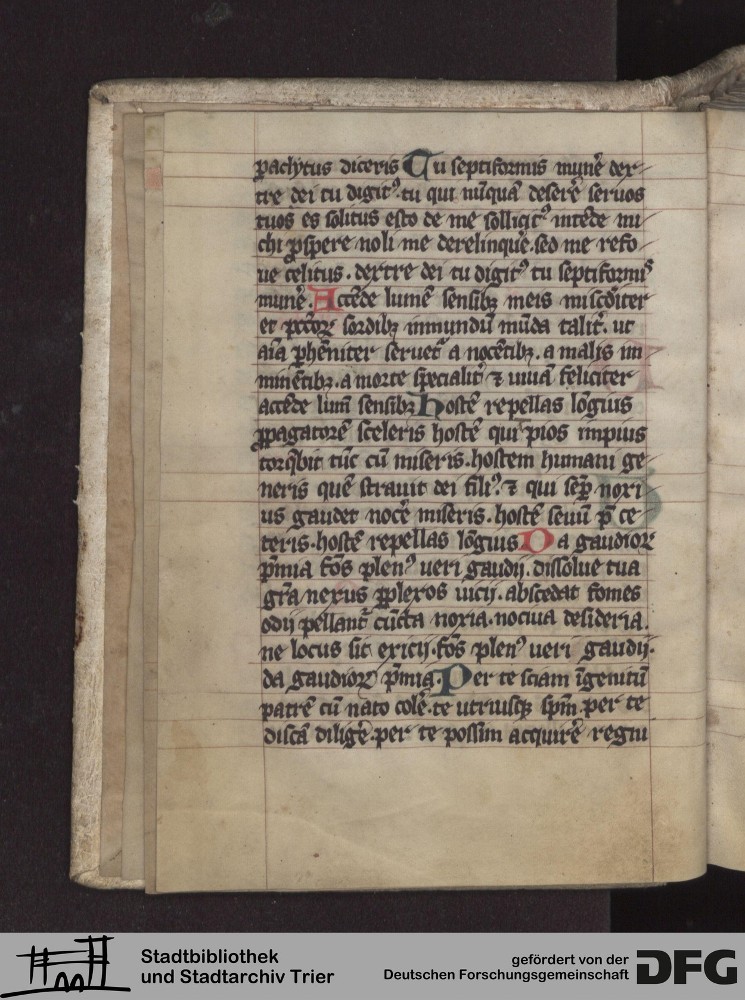 paclytus diceris Tu septiformis mun̄e dex-
tre dei tu digitꝰ. tu qui nūquā deser̄e seruos
tuos es solitus esto de me sollicitꝰ intēde mi-
chi ꝓspere noli me derelinque. sed me refo-
ue celitus. dextre dei tu digitꝰ tu septiformiꝰ
mun̄e. Accēde lumē sensibꝫ meis
et pctōꝝ sordibꝫ inmundū mūda talit̄. ut
aīa ꝑhēniter seruet᷑ a nocētibꝫ. a malis im-
minētibꝫ. a morte specialit̄ ⁊ uiuā feliciter
accēde lum̄ sensibꝫ Hostē repellas lōgius
ꝓpagatorē sceleris hostē qui pios impius
torq̄bit tūc cū miseris. hostem humani ge-
neris quē strauit dei filiꝰ. ⁊ qui sep̄ noxi-
us gaudet noc̄e miseris. hostē seuū p̄ ce-
teris. hostē repellas lōgius Da gaudioꝝ
p̄mia fōs plenꝰ ueri gaudij. dissolue tua
gr̄a nexus ꝑplexos uicij. abscedat fomes
odij pellant᷑ cūcta noxia. nociua desideria.
ne locus sit exicij. fōs plenꝰ ueri gaudij.
da gaudioꝝ p̄mia. Per te sciam īgenitū
patrē cū nato col̄e. te utriusqꝫ spm̄. per te
discā diliḡe. per te possim acquir̄e regni
Stadtbibliothek
und Stadtarchiv Trier
gefördert von der
Deutschen Forschungsgemeinschaft
DFG